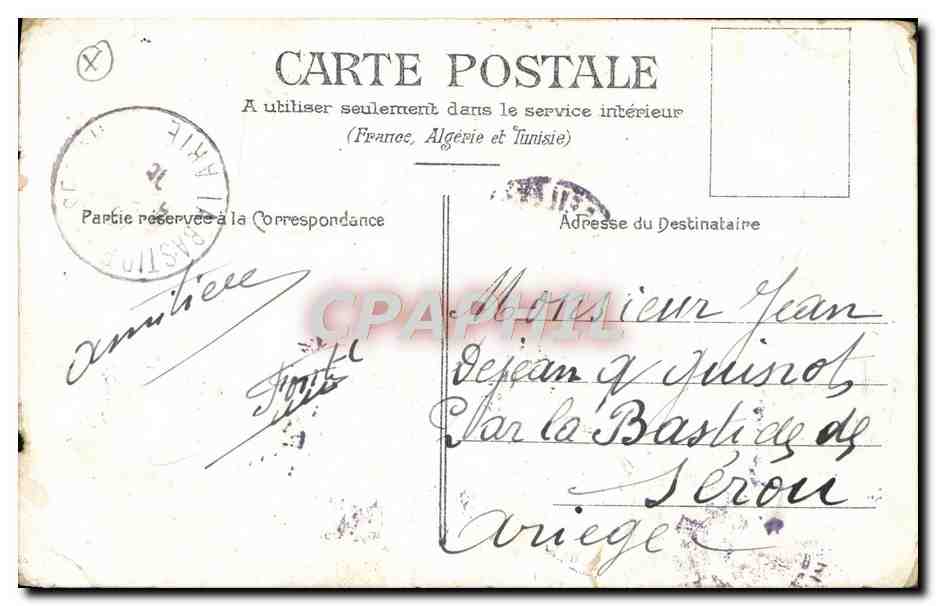 X
CARTE POSTALE
A utiliser seulement dans le service intérieur
(France, Algérie et Tunisie)
LABASTIDE
Partie réservée à la Correspondance
Adresse du Destinataire
CPAPHIL
Monsieur Jean
Dejean a
Par la Bastide de
Sérou
Ariege